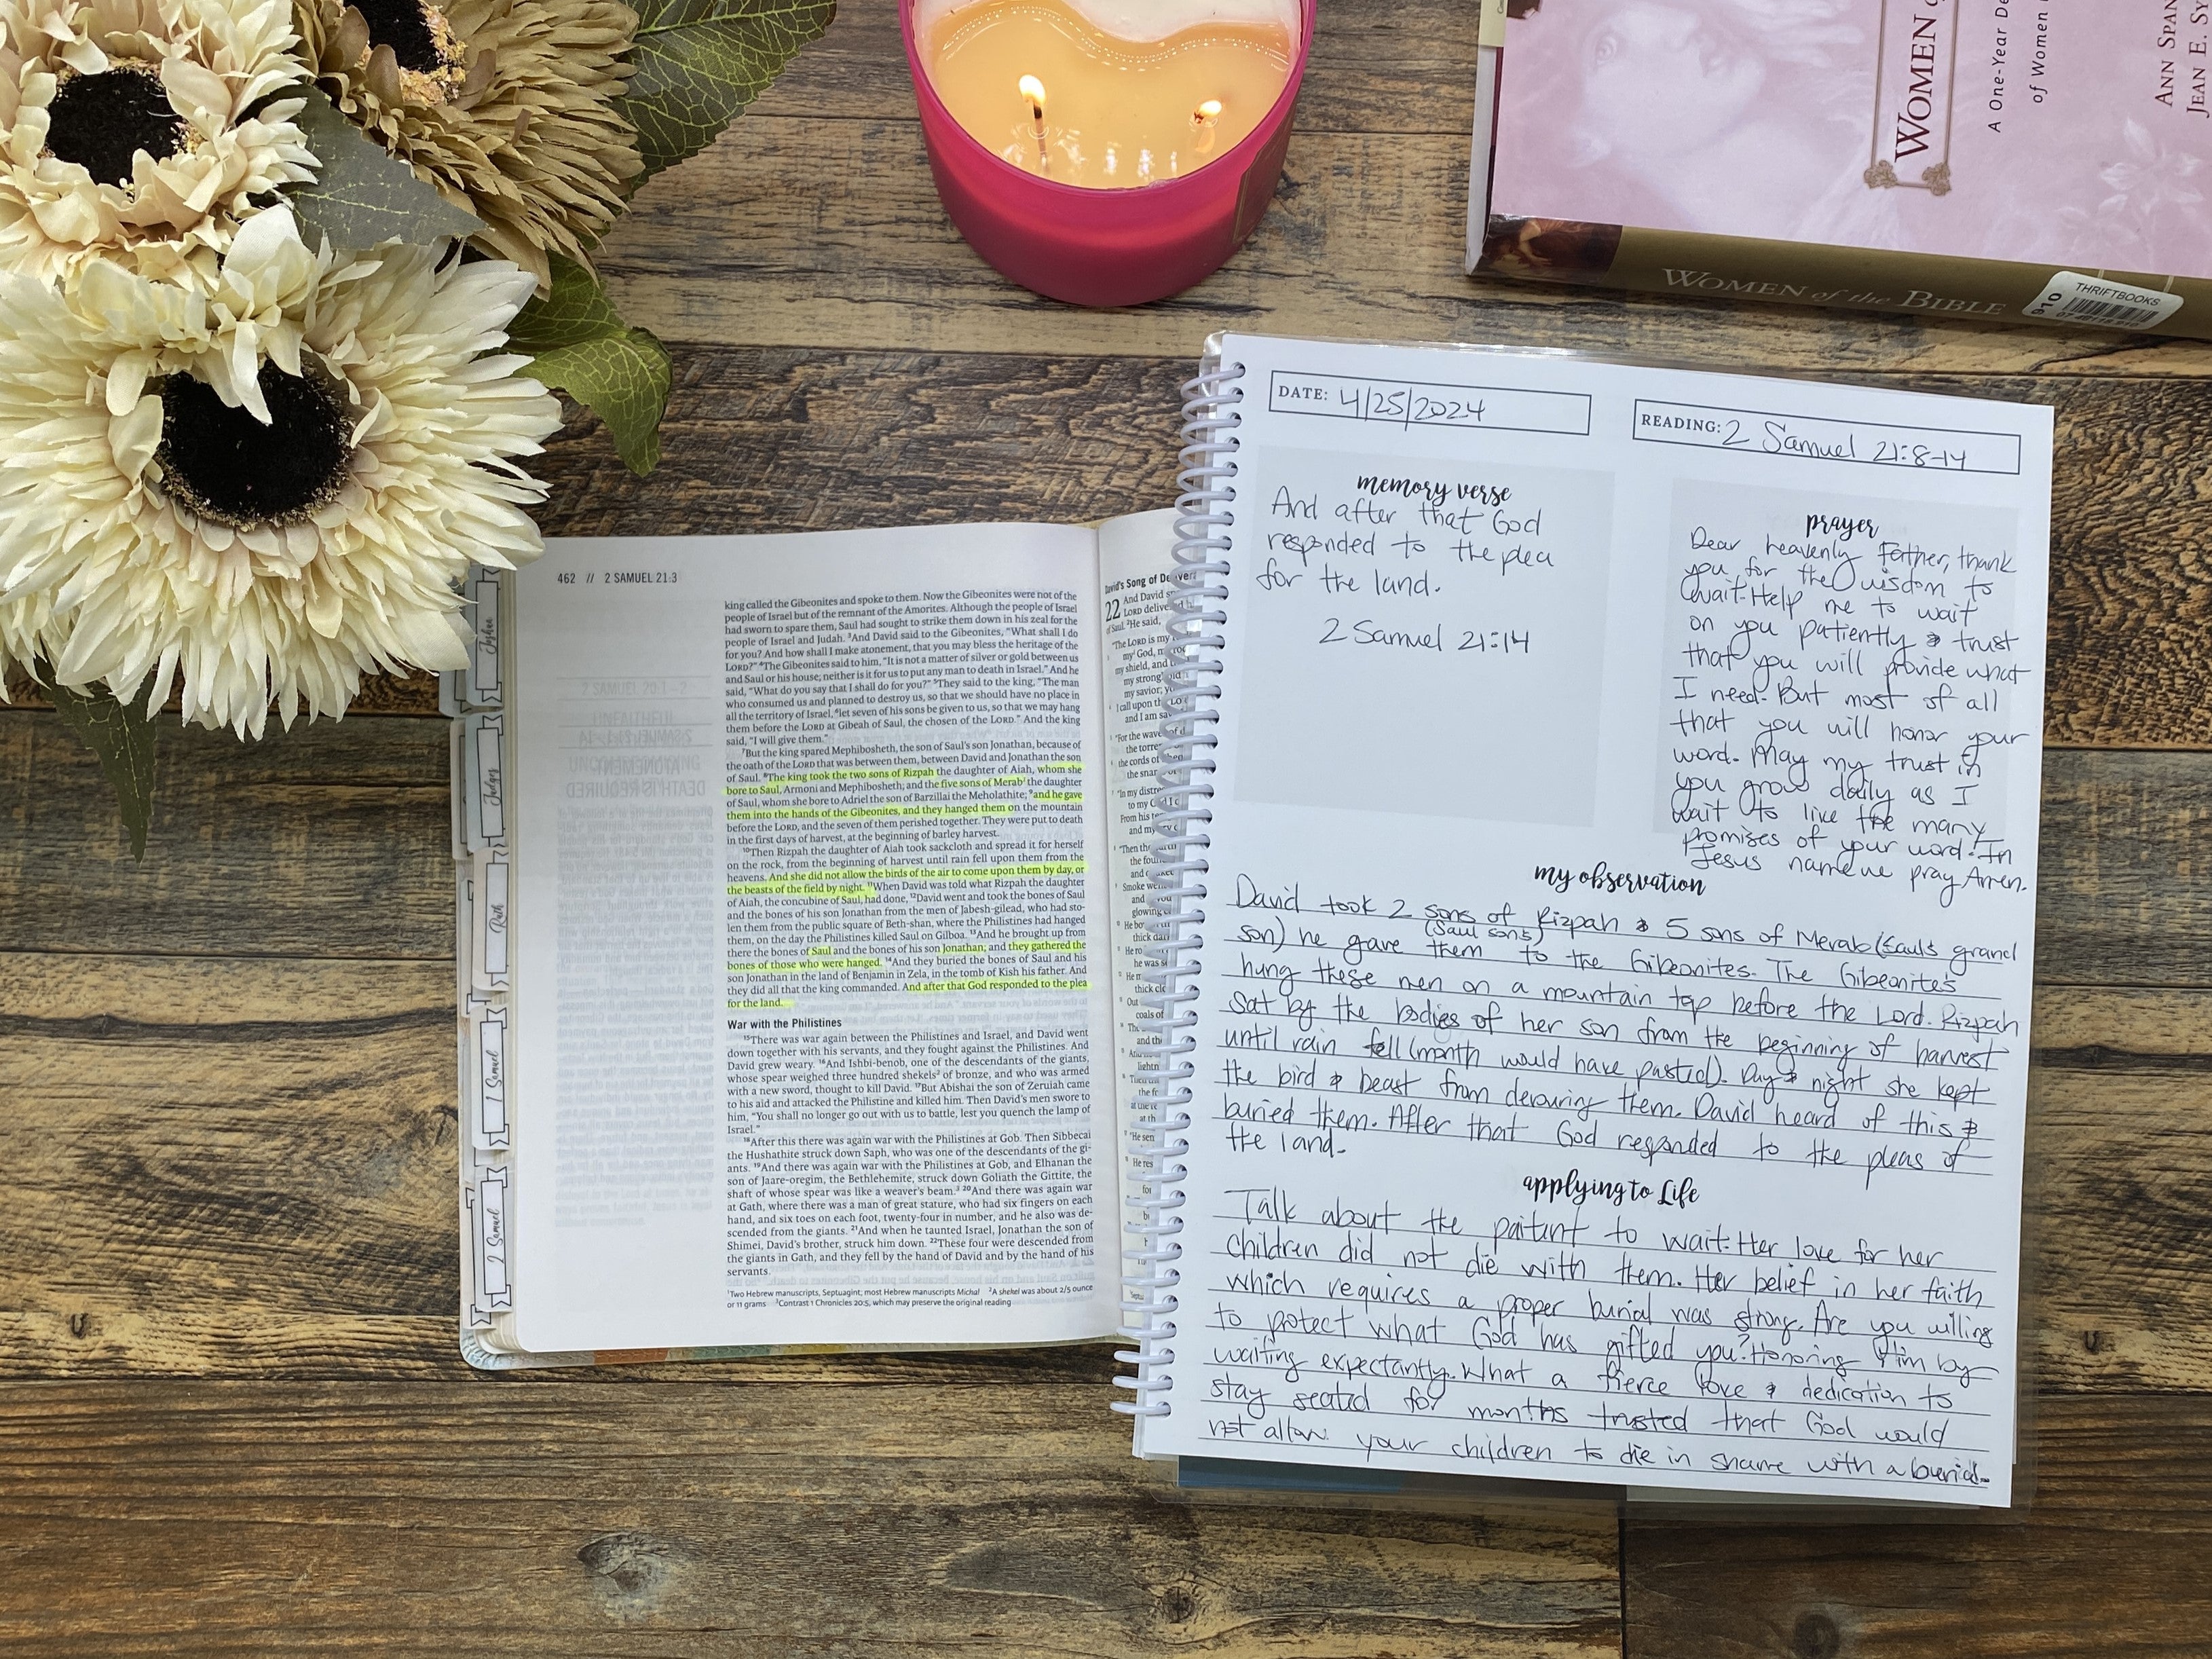 WOMEN
A One-Year De
of Women
ANN SPAN
JEAN E. SY
WOMEN of the BIBLE
THRIFTBOOKS
910
462 // 2 SAMUEL 21:3
king called the Gibeonites and spoke to them. Now the Gibeonites were not of the
people of Israel but of the remnant of the Amorites. Although the people of Israel
had sworn to spare them, Saul had sought to strike them down in his zeal for the
people of Israel and Judah. ³And David said to the Gibeonites, "What shall I do
for you? And how shall I make atonement, that you may bless the heritage of the
LORD?" ⁴The Gibeonites said to him, "It is not a matter of silver or gold between us
and Saul or his house; neither is it for us to put any man to death in Israel." And he
said, "What do you say that I shall do for you?" ⁵They said to the king, "The man
who consumed us and planned to destroy us, so that we should have no place in
all the territory of Israel, ⁶let seven of his sons be given to us, so that we may hang
them before the LORD at Gibeah of Saul, the chosen of the LORD." And the king
said, "I will give them."
⁷But the king spared Mephibosheth, the son of Saul's son Jonathan, because of
the oath of the LORD that was between them, between David and Jonathan the son
of Saul. ⁸The king took the two sons of Rizpah the daughter of Aiah, whom she
bore to Saul, Armoni and Mephibosheth; and the five sons of Merab¹ the daughter
of Saul, whom she bore to Adriel the son of Barzillai the Meholathite; ⁹and he gave
them into the hands of the Gibeonites, and they hanged them on the mountain
before the LORD, and the seven of them perished together. They were put to death
in the first days of harvest, at the beginning of barley harvest.
¹⁰Then Rizpah the daughter of Aiah took sackcloth and spread it for herself
on the rock, from the beginning of harvest until rain fell upon them from the
heavens. And she did not allow the birds of the air to come upon them by day, or
the beasts of the field by night. ¹¹When David was told what Rizpah the daughter
of Aiah, the concubine of Saul, had done, ¹²David went and took the bones of Saul
and the bones of his son Jonathan from the men of Jabesh-gilead, who had sto-
len them from the public square of Beth-shan, where the Philistines had hanged
them, on the day the Philistines killed Saul on Gilboa. ¹³And he brought up from
there the bones of Saul and the bones of his son Jonathan; and they gathered the
bones of those who were hanged. ¹⁴And they buried the bones of Saul and his
son Jonathan in the land of Benjamin in Zela, in the tomb of Kish his father. And
they did all that the king commanded. And after that God responded to the plea
for the land.
War with the Philistines
¹⁵There was war again between the Philistines and Israel, and David went
down together with his servants, and they fought against the Philistines. And
David grew weary. ¹⁶And Ishbi-benob, one of the descendants of the giants,
whose spear weighed three hundred shekels² of bronze, and who was armed
with a new sword, thought to kill David. ¹⁷But Abishai the son of Zeruiah came
to his aid and attacked the Philistine and killed him. Then David's men swore to
him, "You shall no longer go out with us to battle, lest you quench the lamp of
Israel."
¹⁸After this there was again war with the Philistines at Gob. Then Sibbecai
the Hushathite struck down Saph, who was one of the descendants of the gi-
ants. ¹⁹And there was again war with the Philistines at Gob, and Elhanan the
son of Jaare-oregim, the Bethlehemite, struck down Goliath the Gittite, the
shaft of whose spear was like a weaver's beam.³ ²⁰And there was again war
at Gath, where there was a man of great stature, who had six fingers on each
hand, and six toes on each foot, twenty-four in number, and he also was de-
scended from the giants. ²¹And when he taunted Israel, Jonathan the son of
Shimei, David's brother, struck him down. ²²These four were descended from
the giants in Gath, and they fell by the hand of David and by the hand of his
servants.
¹Two Hebrew manuscripts, Septuagint; most Hebrew manuscripts Michal ²A shekel was about 2/5 ounce
or 11 grams ³Contrast 1 Chronicles 20:5, which may preserve the original reading
Judges
Ruth
1 Samuel
2 Samuel
David's Song of Deliver
22 And David
LORD delive
of Saul. ²He said,
"The LORD is my
my God, m
my shield, and
my strong
my savior; y
I call upon th
and I am sa
DATE: 4/25/2024
READING: 2 Samuel 21:8-14
memory verse
And after that God
responded to the plea
for the land.
2 Samuel 21:14
prayer
Dear heavenly Father, thank
you for the wisdom to
wait. Help me to wait
on you patiently & trust
that you will provide what
I need. But most of all
that you will honor your
word. May my trust in
you grow daily as I
wait to live the many
promises of your word. In
Jesus name we pray Amen.
my observation
David took 2 sons of Rizpah & 5 sons of Merab (Saul's grand
(Saul sons)
son) he gave them to the Gibeonites. The Gibeonite's
hung these men on a mountain top before the Lord. Rizpah
sat by the bodies of her son from the beginning of harvest
until rain fell (month would have pasted). Day & night she kept
the bird & beast from devouring them. David heard of this &
buried them. After that God responded to the pleas of
the land.
applying to Life
Talk about the paitunt to wait. Her love for her
children did not die with them. Her belief in her faith
which requires a proper burial was strong. Are you willing
to protect what God has gifted you? Honoring Him by
waiting expectantly. What a fierce love & dedication to
stay seated for months trusted that God would
not allow your children to die in shame with a burial.